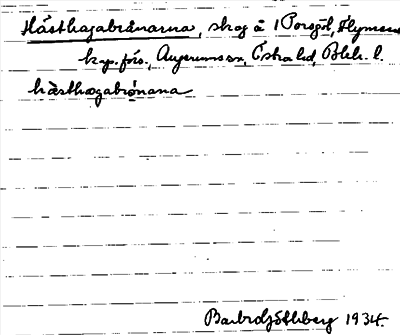 Hästhagabrånarna, skog å 1 Porsgöl, Flymens
kap.förs., Augerums sn, Östra hd, Blek. l.
hästhagabrånana
Barbro Göthberg 1934.